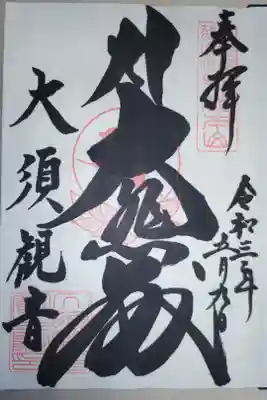 奉拝
令和三年五月九日
大悲殿
大須観音